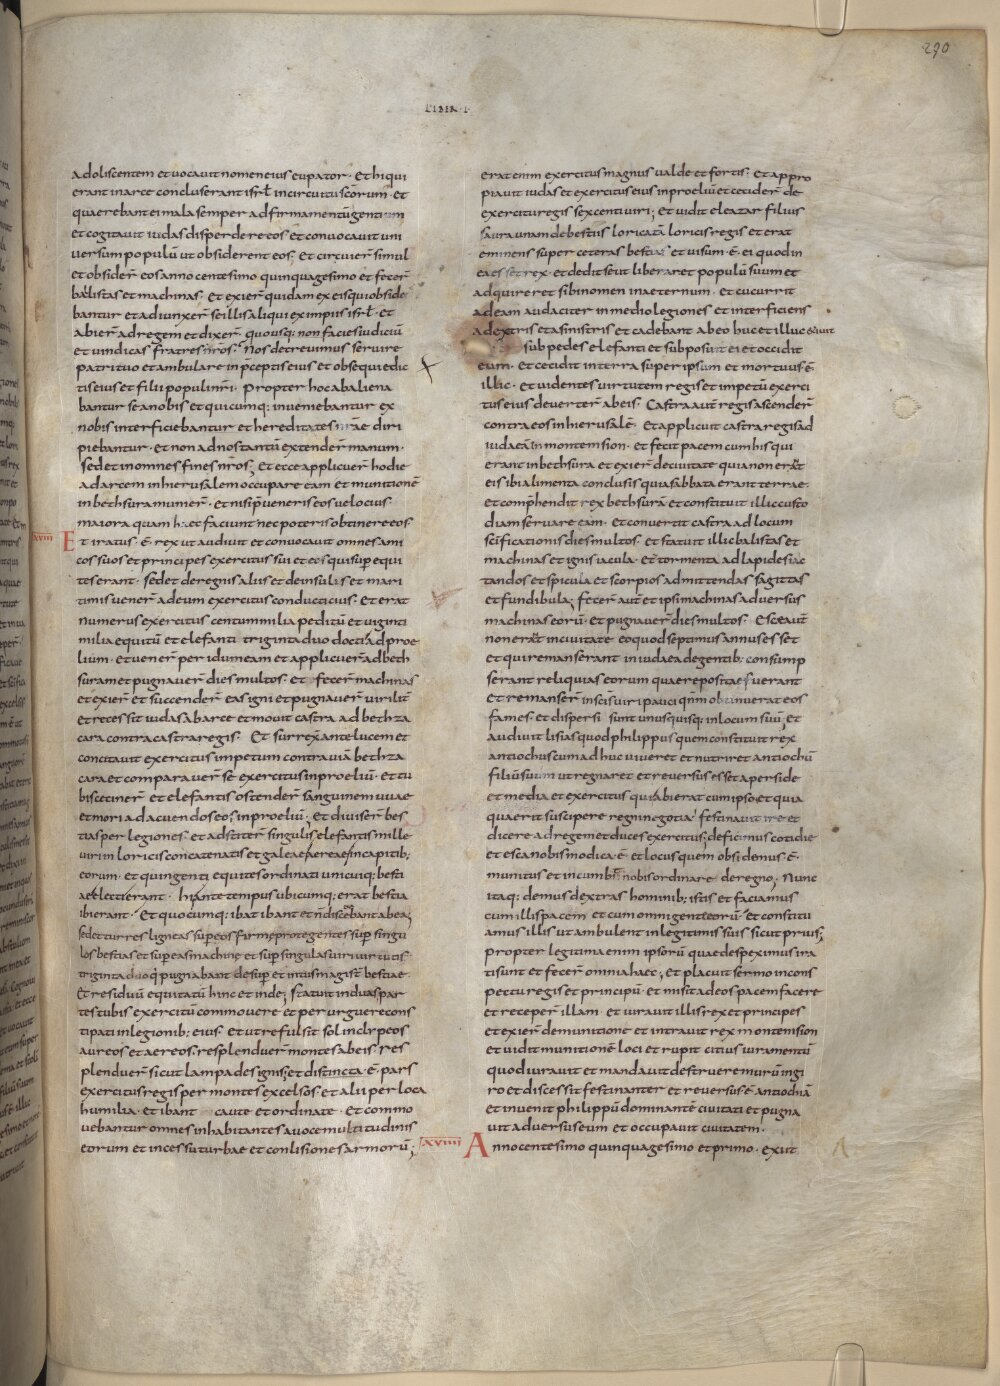 290
LIBER · I ·
adoliscentem et vocavit nomen eius eupator · Et hi qui
erant in arce concluserant isrł in circuitu scorum · Et
quaerebant ei mala semper ad firmamentū gentium
et cogitavit iudas disperdere eos et convocavit uni
versum populū ut obsiderent eos · Et circuier simul
et obsider eos anno centesimo quinquagesimo et fecer
balistas et machinas · Et exier quidam ex eis qui obside
bantur et adiunxer se illis aliqui ex impiis isrł · Et
abier ad regem et dixer · quousq; non facies iudiciū
et vindicas fratres nros · Nos decrevimus servire
patri tuo et ambulare in pceptis eius et obsequi edic
tis eius et filii populi nri · Propter hoc abaliena
bantur se a nobis et quicumq; inveniebantur ex
nobis interficiebantur et hereditates nrae diri
piebantur · et non ad nos tantū extender manum ·
sed et in omnes fines nros; Et ecce applicuer hodie
ad arcem in hierusalem occupare eam et munitionē
in bethsura munier · Et nisi pveneris eos velocius ·
maiora quam haec faciunt nec poteris obtinere eos ·
xviii Et iratus · ē · rex ut audivit et convocavit omnes ami
cos suos et principes exercitus sui et eos qui sup equi
tes erant · sed et de regnis aliis et de insulis et mari
timis vener ad eum exercitus conducticius · Et erat
numerus exercitus centum milia peditū et viginti
milia equitū et elefanti triginta duo docti ad proe
lium · et vener per idumeam et applicuer ad beth
suram et pugnaver dies multos · et fecer machinas
et exier et succender eas igni et pugnaver virilit
et recessit iudas ab arce et movit castra ad bethza
cara contra castra regis · Et surrex ante lucem et
concitavit exercitus impetum contra viā bethza
cara et comparaver se exercitus in proeliū · et tu
bis ceciner et elefantis ostender sanguinem uvae
et mori ad acuendos eos in proeliū; et diviser bes
tias per legiones · et adstiter singulis elefantis mille
viri in loricis concatenatis et galeae aereae in capitib;
eorum · et quingenti equites ordinati unicuiq; besti
ae electi erant · hi ante tempus ubicumq; erat bestia
ibi erant · Et quocumq; ibat ibant et n̄ discedebant ab ea;
sed et turres ligneas sup eos firme protegentes sup singu
los bestias et sup eas machine et sup singulas viri virtutis
triginta duo q pugnabant desup et intus magist bestiae
Et residuū equitatū hinc et inde; statuit in duas par
tes tubis exercitū commovere et perurguere cons
tipati in legionib; eius · et ut refulsit sol in clipeos
aureos et aereos · resplenduer montes ab eis · res
plenduer sicut lampades ignis; et distincta · ē · pars
exercitus regis per montes excelsos · et alii per loca
humilia · et ibant caute et ordinate · et commo
vebantur omnes inhabitantes a voce multitudinis
eorum et incessu turbae et conlisiones armorū;
erat enim exercitus magnus valde et fortis · Et appro
piavit iudas et exercitus eius in proeliū et cecider de
exercitu regis sexcenti viri; et vidit eleazar filius
saura unam de bestiis loricatā loricis regis et erat
eminens super ceteras bestias et visum · ē · ei quod in
ea esset rex · et dedit se ut liberaret populū suum et
adquireret sibi nomen in aeternum · Et cucurrit
ad eam audaciter in medio legiones et interficiens
a dextris et a sinistris et cadebant ab eo huc et illuc et ivit
sub pedes elefanti et subposuit ei et occidit
eum · et cecidit in terra super ipsum et mortuus · ē ·
illic · et videntes virtutem regis et impetū exerci
tus eius deverter ab eis · Castra autē regis ascender
contra eos in hierusalē · Et applicuit castra regis ad
iudaeā in montem sion · et fecit pacem cum his qui
erant in bethsura et exier de civitate quia non erat
eis ibi alimenta conclusis quia sabbata erant terrae ·
et comphendit rex bethsurā et constituit illic custo
diam servare eam · Et convertit castra ad locum
scificationis dies multos · et statuit illic balistas et
machinas et ignis iacula · et tormenta ad lapides iac
tandos et spicula et scorpios ad mittendas sagittas
et fundibula; fecer autē et ipsi machinas adversus
machinas eorū · et pugnaver dies multos · Escae autē
non erat in civitate eo quod septimus annus esset
et qui remanserant in iudaea de gentib; consump
serant reliquias eorum quae repositae fuerant
et remanser in scis viri pauci qm obtinuerat eos
fames · et dispersi sunt unusquisq; in locum suū; et
audivit lisias quod philippus quem constituit rex
antiochus cum adhuc viveret et nutriret antiochū
filiū suum ut regnaret et reversus esset a perside
et media et exercitus qui abierat cum ipso · et quia
quaerit suscipere regni negotia · festinavit ire et
dicere ad regem et duces exercitus; deficimus cotidie
et esca nobis modica · ē · et locus quem obsidemus · ē ·
munitus et incumbit nobis ordinare de regno · Nunc
itaq; demus dextras hominib; istis et faciamus
cum illis pacem et cum omni gente eorū · Et constitu
amus illis ut ambulent in legitimis suis sicut prius;
propter legitima enim ipsorū quae despeximus ira
ti sunt et fecer omnia haec; et placuit sermo in cons
pectu regis et principū · et misit ad eos pacem facere
et receper illam · et iuravit illis rex et principes
et exier de munitione et intravit rex montem sion
et vidit munitionē loci et rupit citius iuramentū
quod iuravit et mandavit destruere murū in gi
ro et discessit festinanter et reversus · ē · antiochiā
et invenit philippū dominantē civitati et pugna
vit adversus eum et occupavit civitatem ·
xviiii Anno centesimo quinquagesimo et primo · exiit